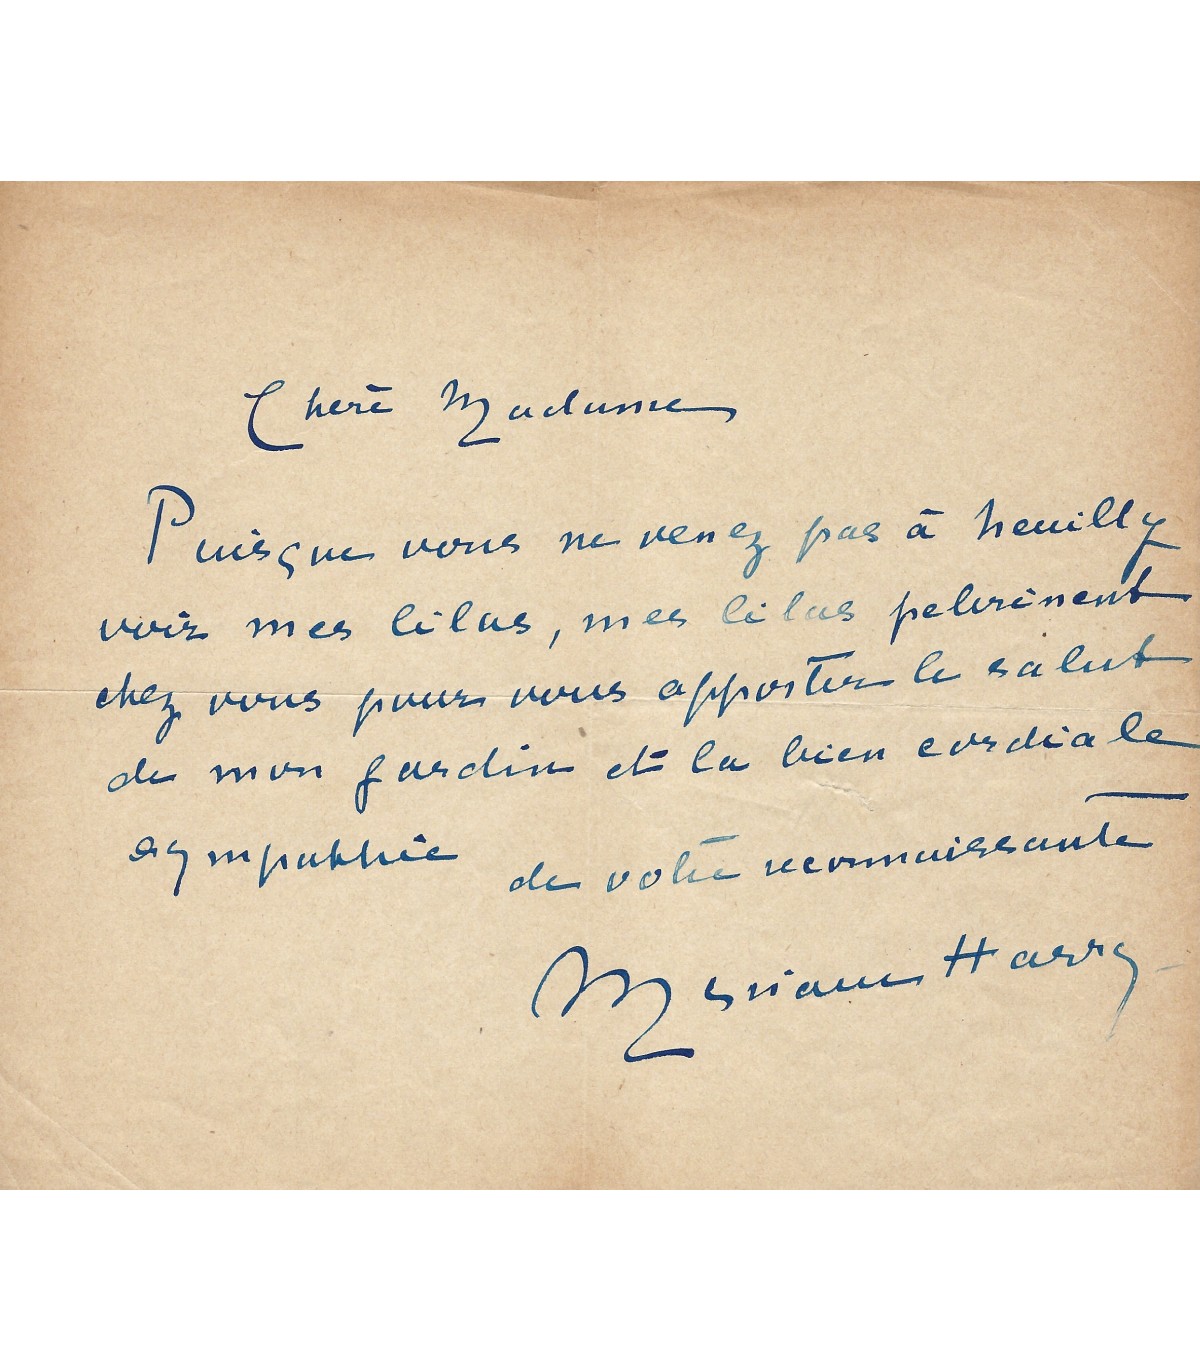 Chère Madame,
Puisque vous ne venez pas à Neuilly
voir mes lilas, mes lilas pelerinent
chez vous pour vous apporter le salut
de mon jardin et la bien cordiale
sympathie de votre reconnaissante
Myriam Harry